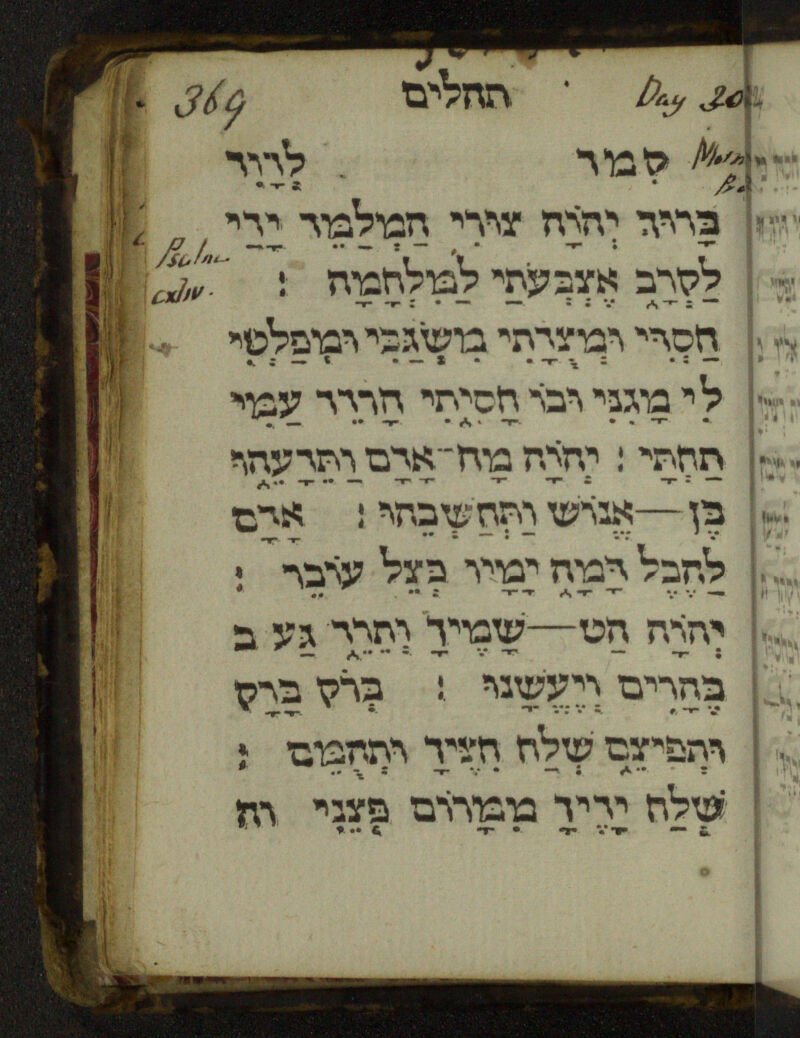 369 תהלים Day 30
קמד לְדָוִד
Psalm cxliv.
בָּרוּךְ יְהוָֹה צוּרִי הַמְלַמֵּד יָדַי
לַקְרָב אֶצְבְּעֹתַי לַמִּלְחָמָה :
חַסְדִּי וּמְצֻדָתִי מִשְׂגַּבִּי וּמְפַלְטִי
לִי מָגִנִּי וּבוֹ חָסִיתִי הָרֹדֵד עַמִּי
תַחְתָּי : יְהוָֹה מָה־אָדָם וַתֵּדָעֵהוּ
בֶּן—אֱנוֹשׁ וַתְּחַשְּׁבֵהוּ : אָדָם
לַהֶבֶל דָּמָה יָמָיו כְּצֵל עוֹבֵר :
יְהוָֹה הַט—שָׁמֶיךָ וְתֵרֵד גַּע ב
בֶּהָרִים וְיֶעֱשָׁנוּ : בְּרֹק בָּרָק
וּתְפִיצֵם שְׁלַח חִצֶּיךָ וּתְהֻמֵּם :
שְׁלַח יָדֶיךָ מִמָּרוֹם פְּצֵנִי וה